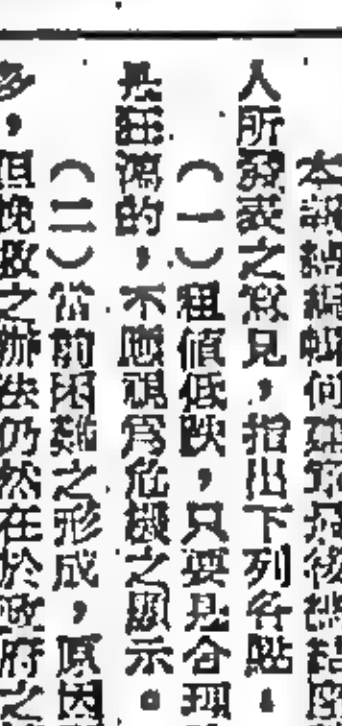 本報總編輯何
人所發表之意見，指出下列各點
（一）租值低跌，只要是合理
是狂瀉的，不應視爲危機之顯示。
（二）當前困難之形成，原因
多，但挽救之辦法仍然在於政府之